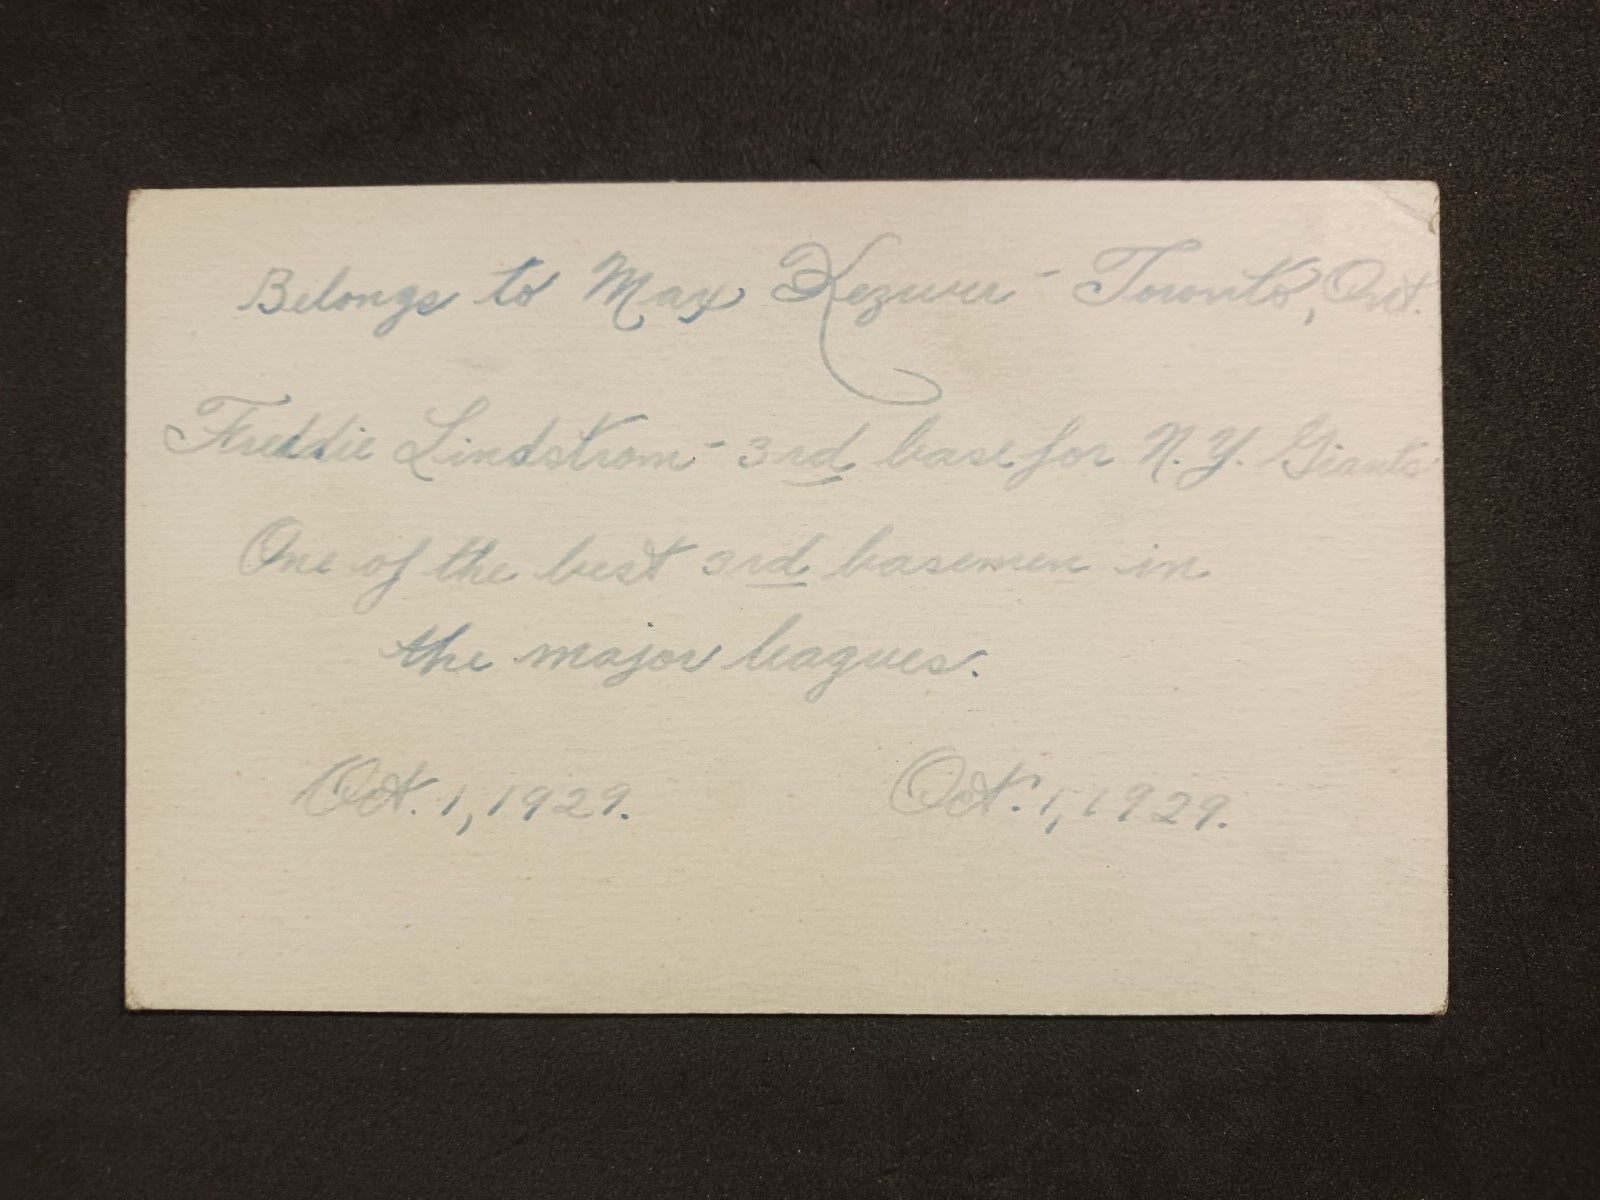 Belongs to Max - Toronto, Ont.
Freddie Lindstrom - 3rd base for N.Y. Giants
One of the best 3rd basemen in
the major leagues.
Oct. 1, 1929. Oct. 1, 1929.